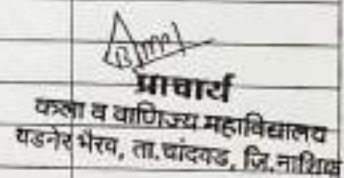 प्राचार्य
कला व वाणिज्य महाविद्यालय
वडनेर भैरव, ता.चांदवड, जि.नाशिक